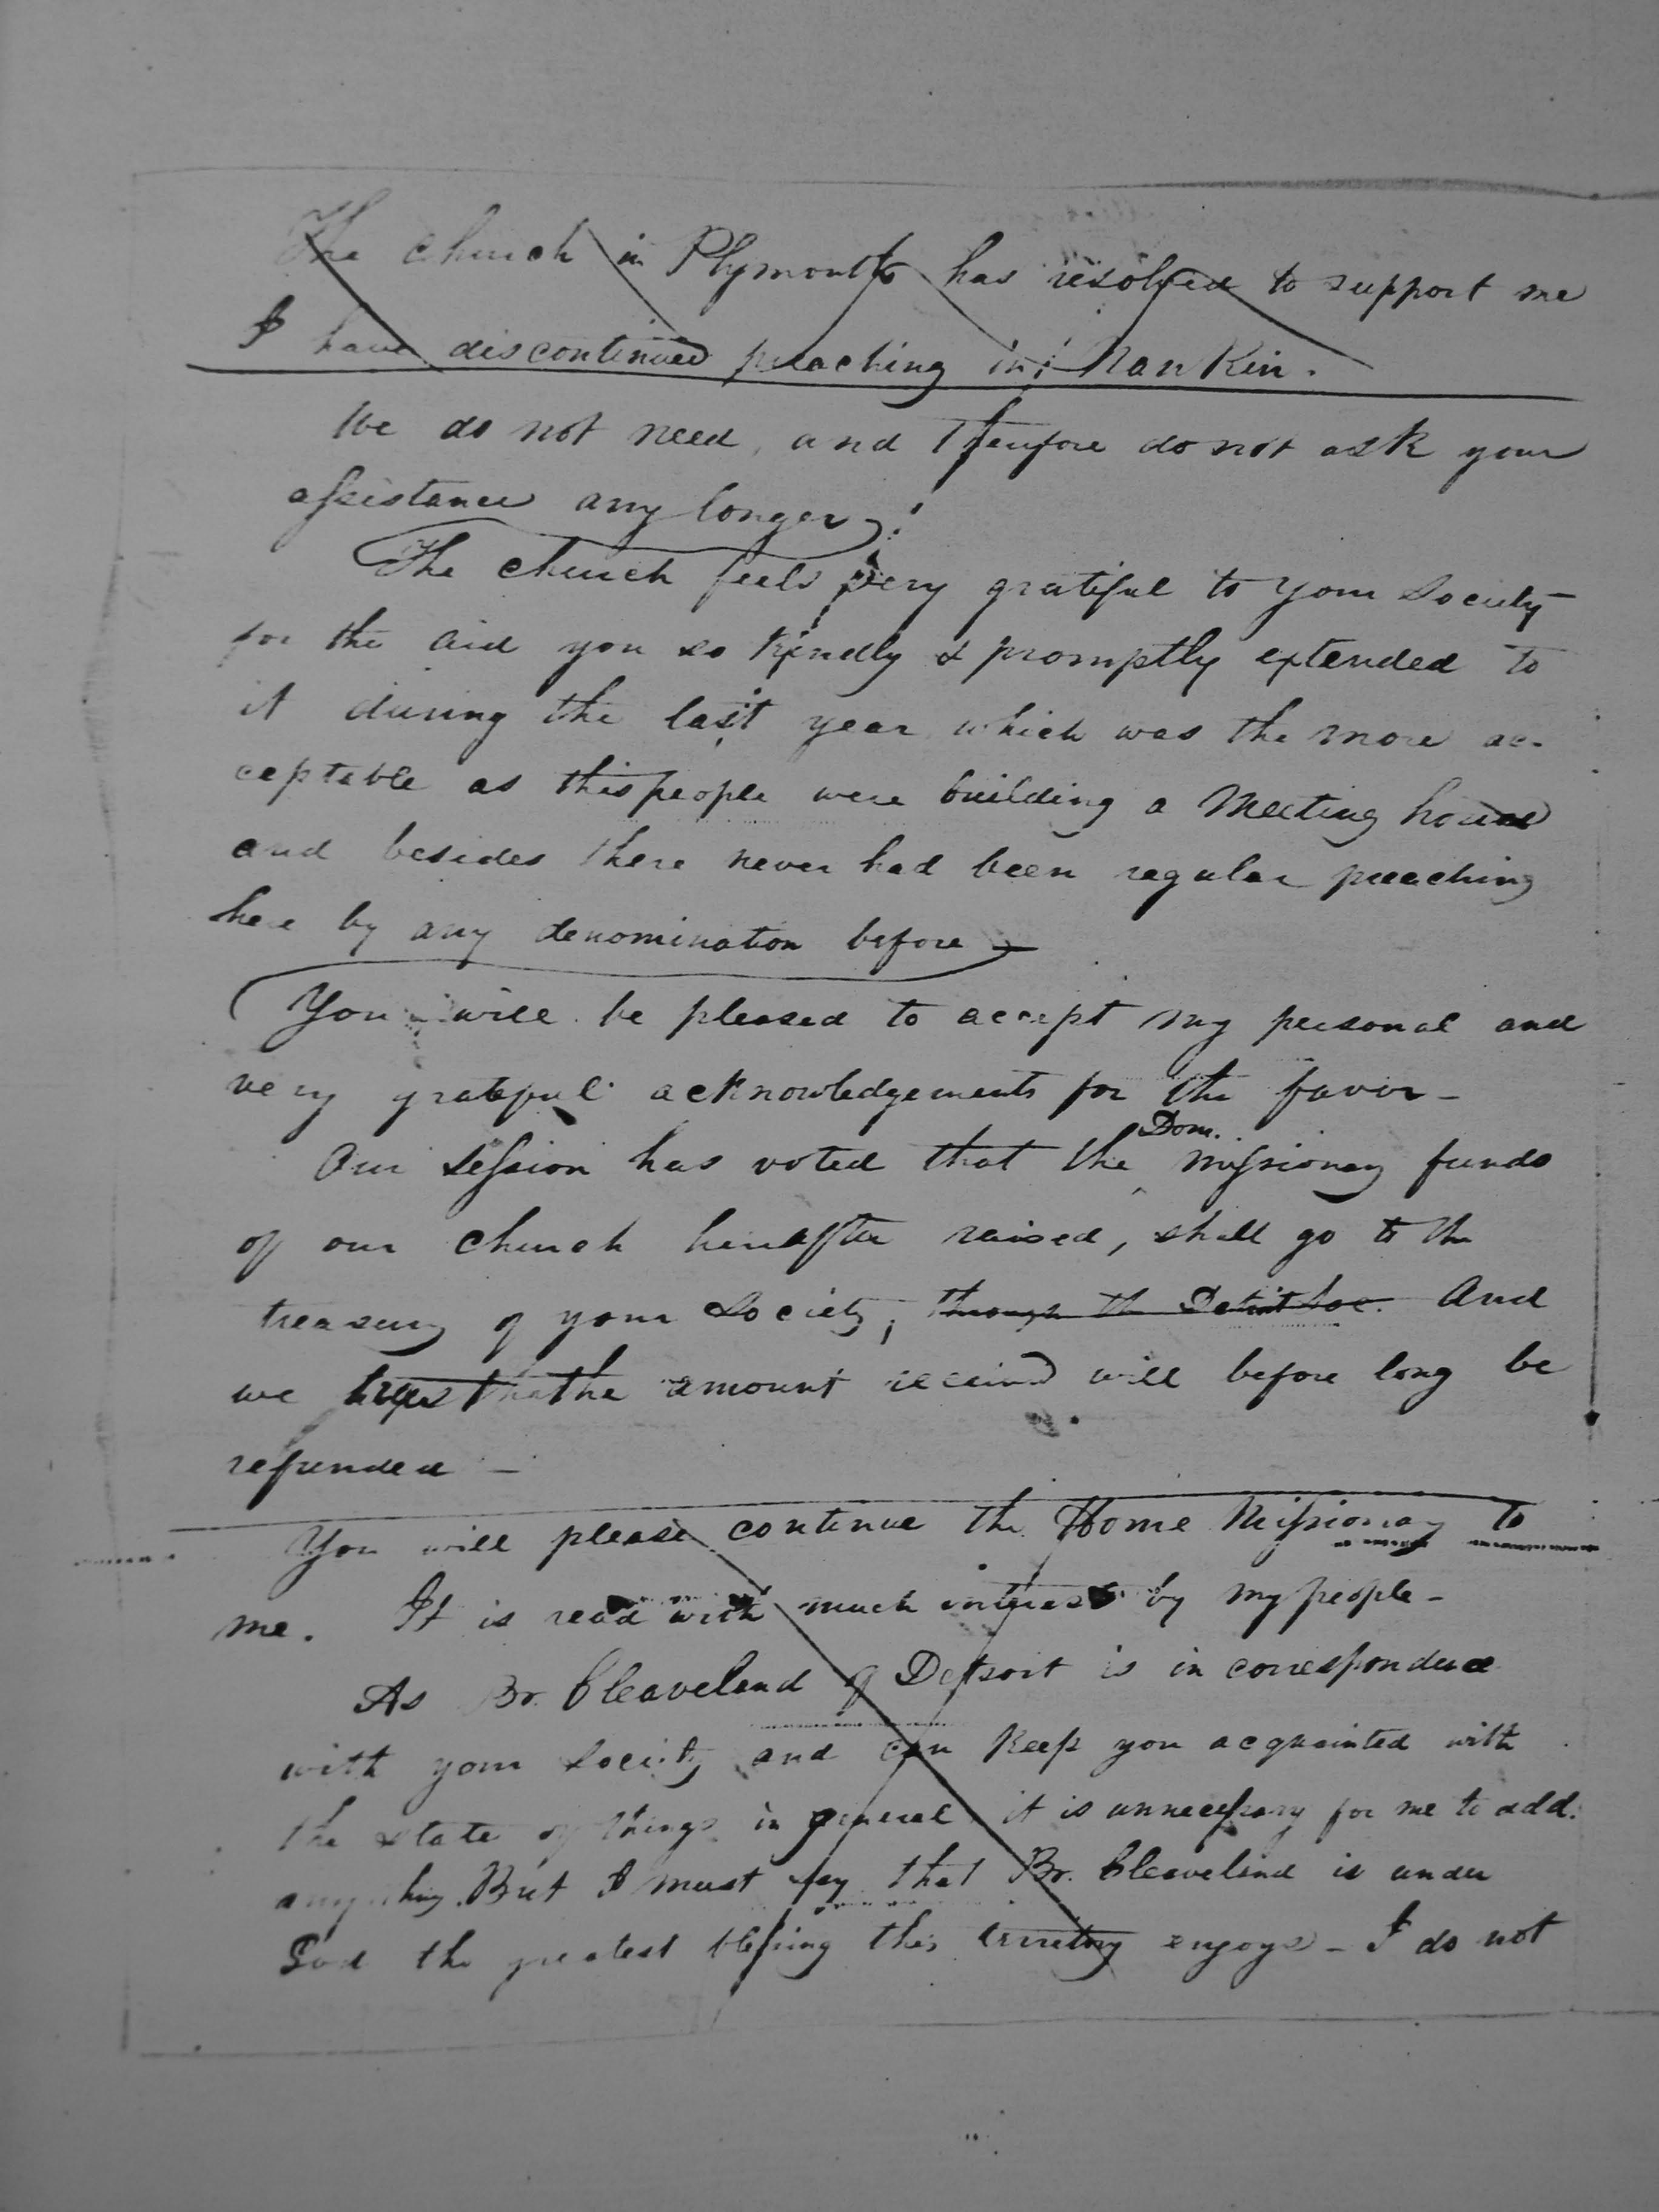 The church in Plymouth has resolved to support me
I have discontinued preaching in Nankin.
We do not need, and Therefore do not ask your
assistance any longer.
The church feels very grateful to your Society
for the aid you so kindly & promptly extended to
it during the last year which was the more ac-
ceptable as this people were building a Meeting house
and besides there never had been regular preaching
here by any denomination before
You will be pleased to accept my personal and
very grateful acknowledgements for the favor -
Our Session has voted that the Dom. missionary funds
of our church hereafter raised, shall go to the
treasury of your Society, through the Detroit Soc. And
we that the amount received will before long be
refunded -
You will please continue the Home Missionary to
me. It is read with much interest by my people -
As Br. Cleaveland of Detroit is in correspondence
with your Society and can keep you acquainted with
the state of things in general it is unnecessary for me to add
anything. But I must say that Br. Cleaveland is under
God the greatest blessing this territory enjoys - I do not